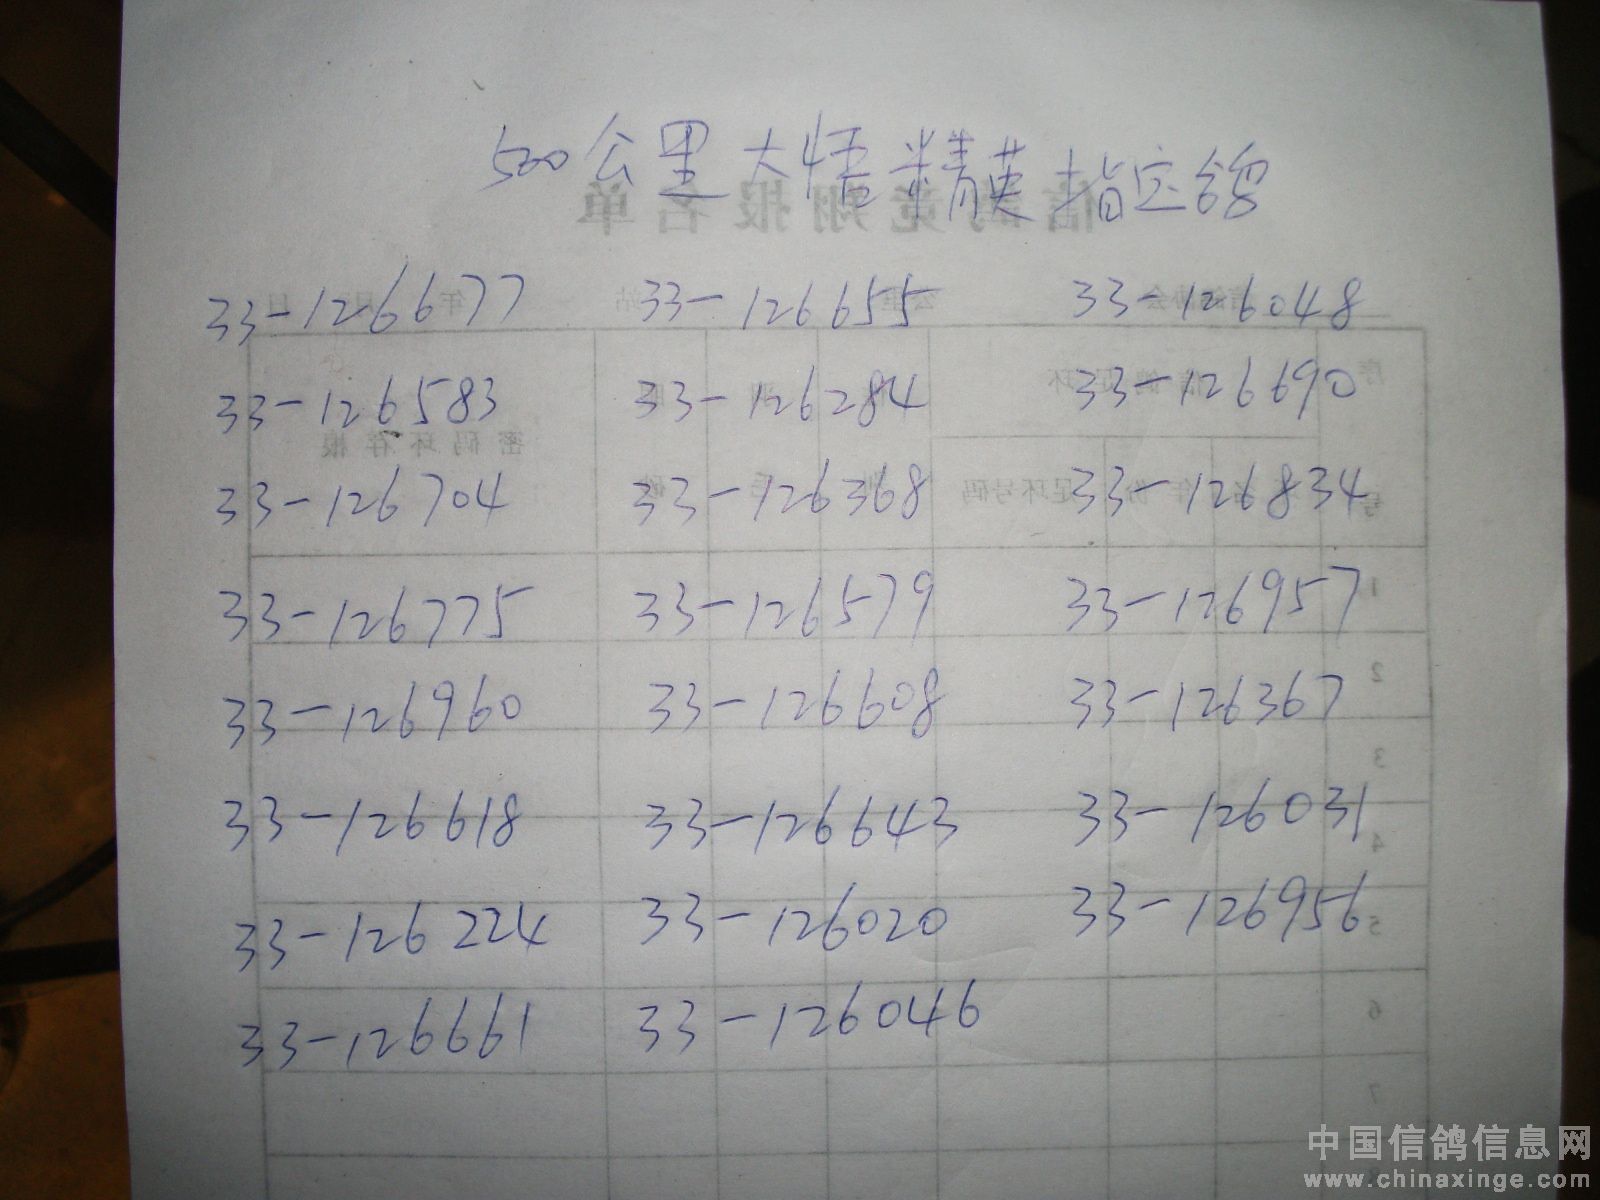 500公里大悟精英指定鸽
33-126677 33-126655 33-126048
33-126583 33-126284 33-126690
33-126704 33-126368 33-126834
33-126775 33-126579 33-126957
33-126960 33-126608 33-126367
33-126618 33-126643 33-126031
33-126224 33-126020 33-126956
33-126661 33-126046
中国信鸽信息网
www.chinaxinge.com